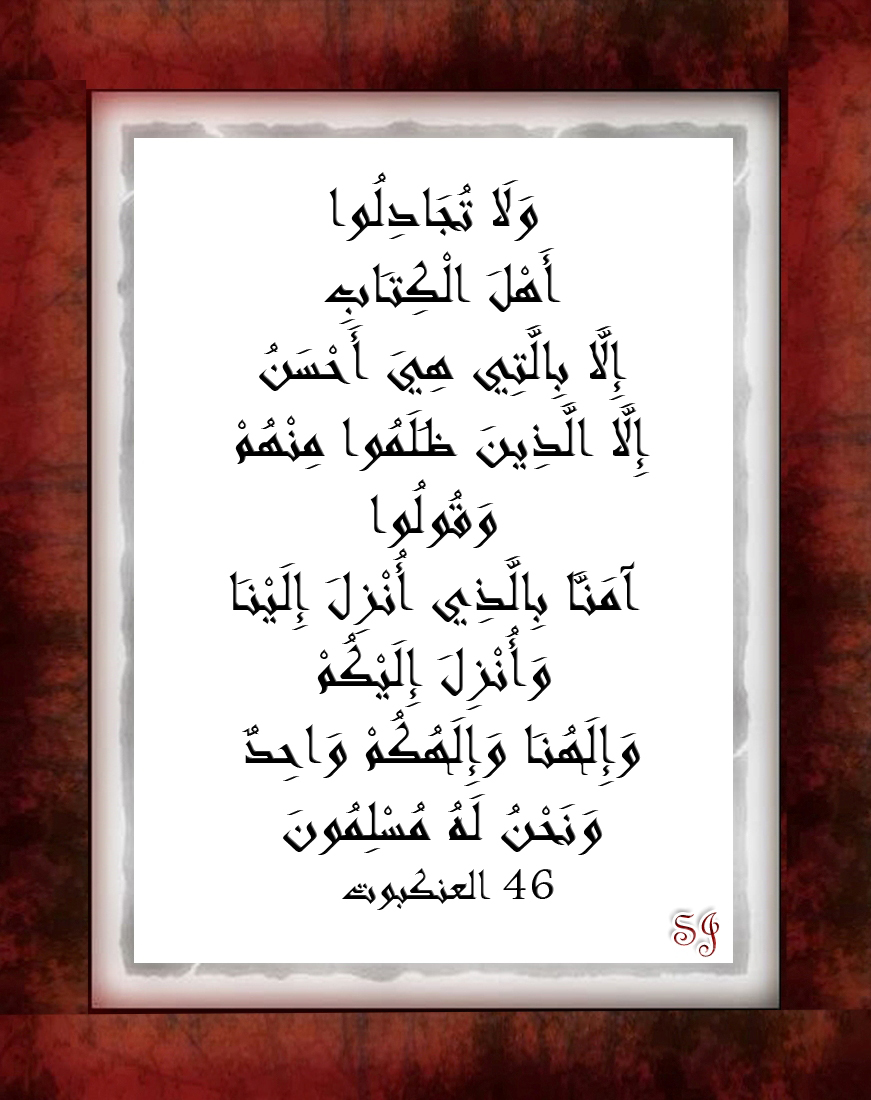 وَلَا تُجَادِلُوا
أَهْلَ الْكِتَابِ
إِلَّا بِالَّتِي هِيَ أَحْسَنُ
إِلَّا الَّذِينَ ظَلَمُوا مِنْهُمْ
وَقُولُوا
آمَنَّا بِالَّذِي أُنْزِلَ إِلَيْنَا
وَأُنْزِلَ إِلَيْكُمْ
وَإِلَهُنَا وَإِلَهُكُمْ وَاحِدٌ
وَنَحْنُ لَهُ مُسْلِمُونَ
46 العنكبوت
SJ